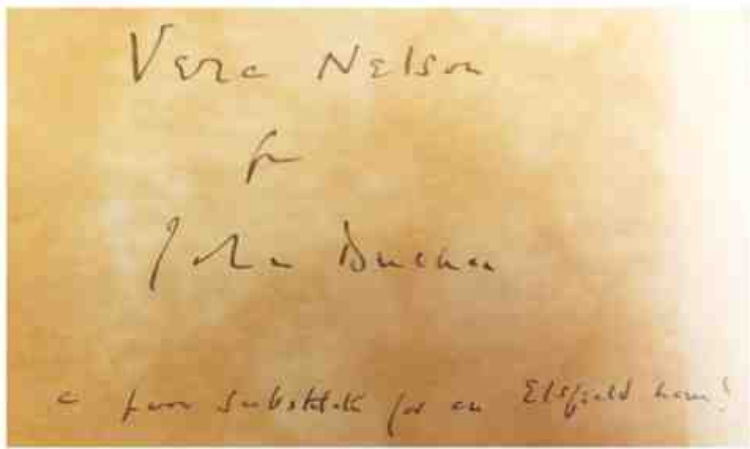 Vera Nelson
fr
John Buchan
a poor substitute for an Elsfield ham!